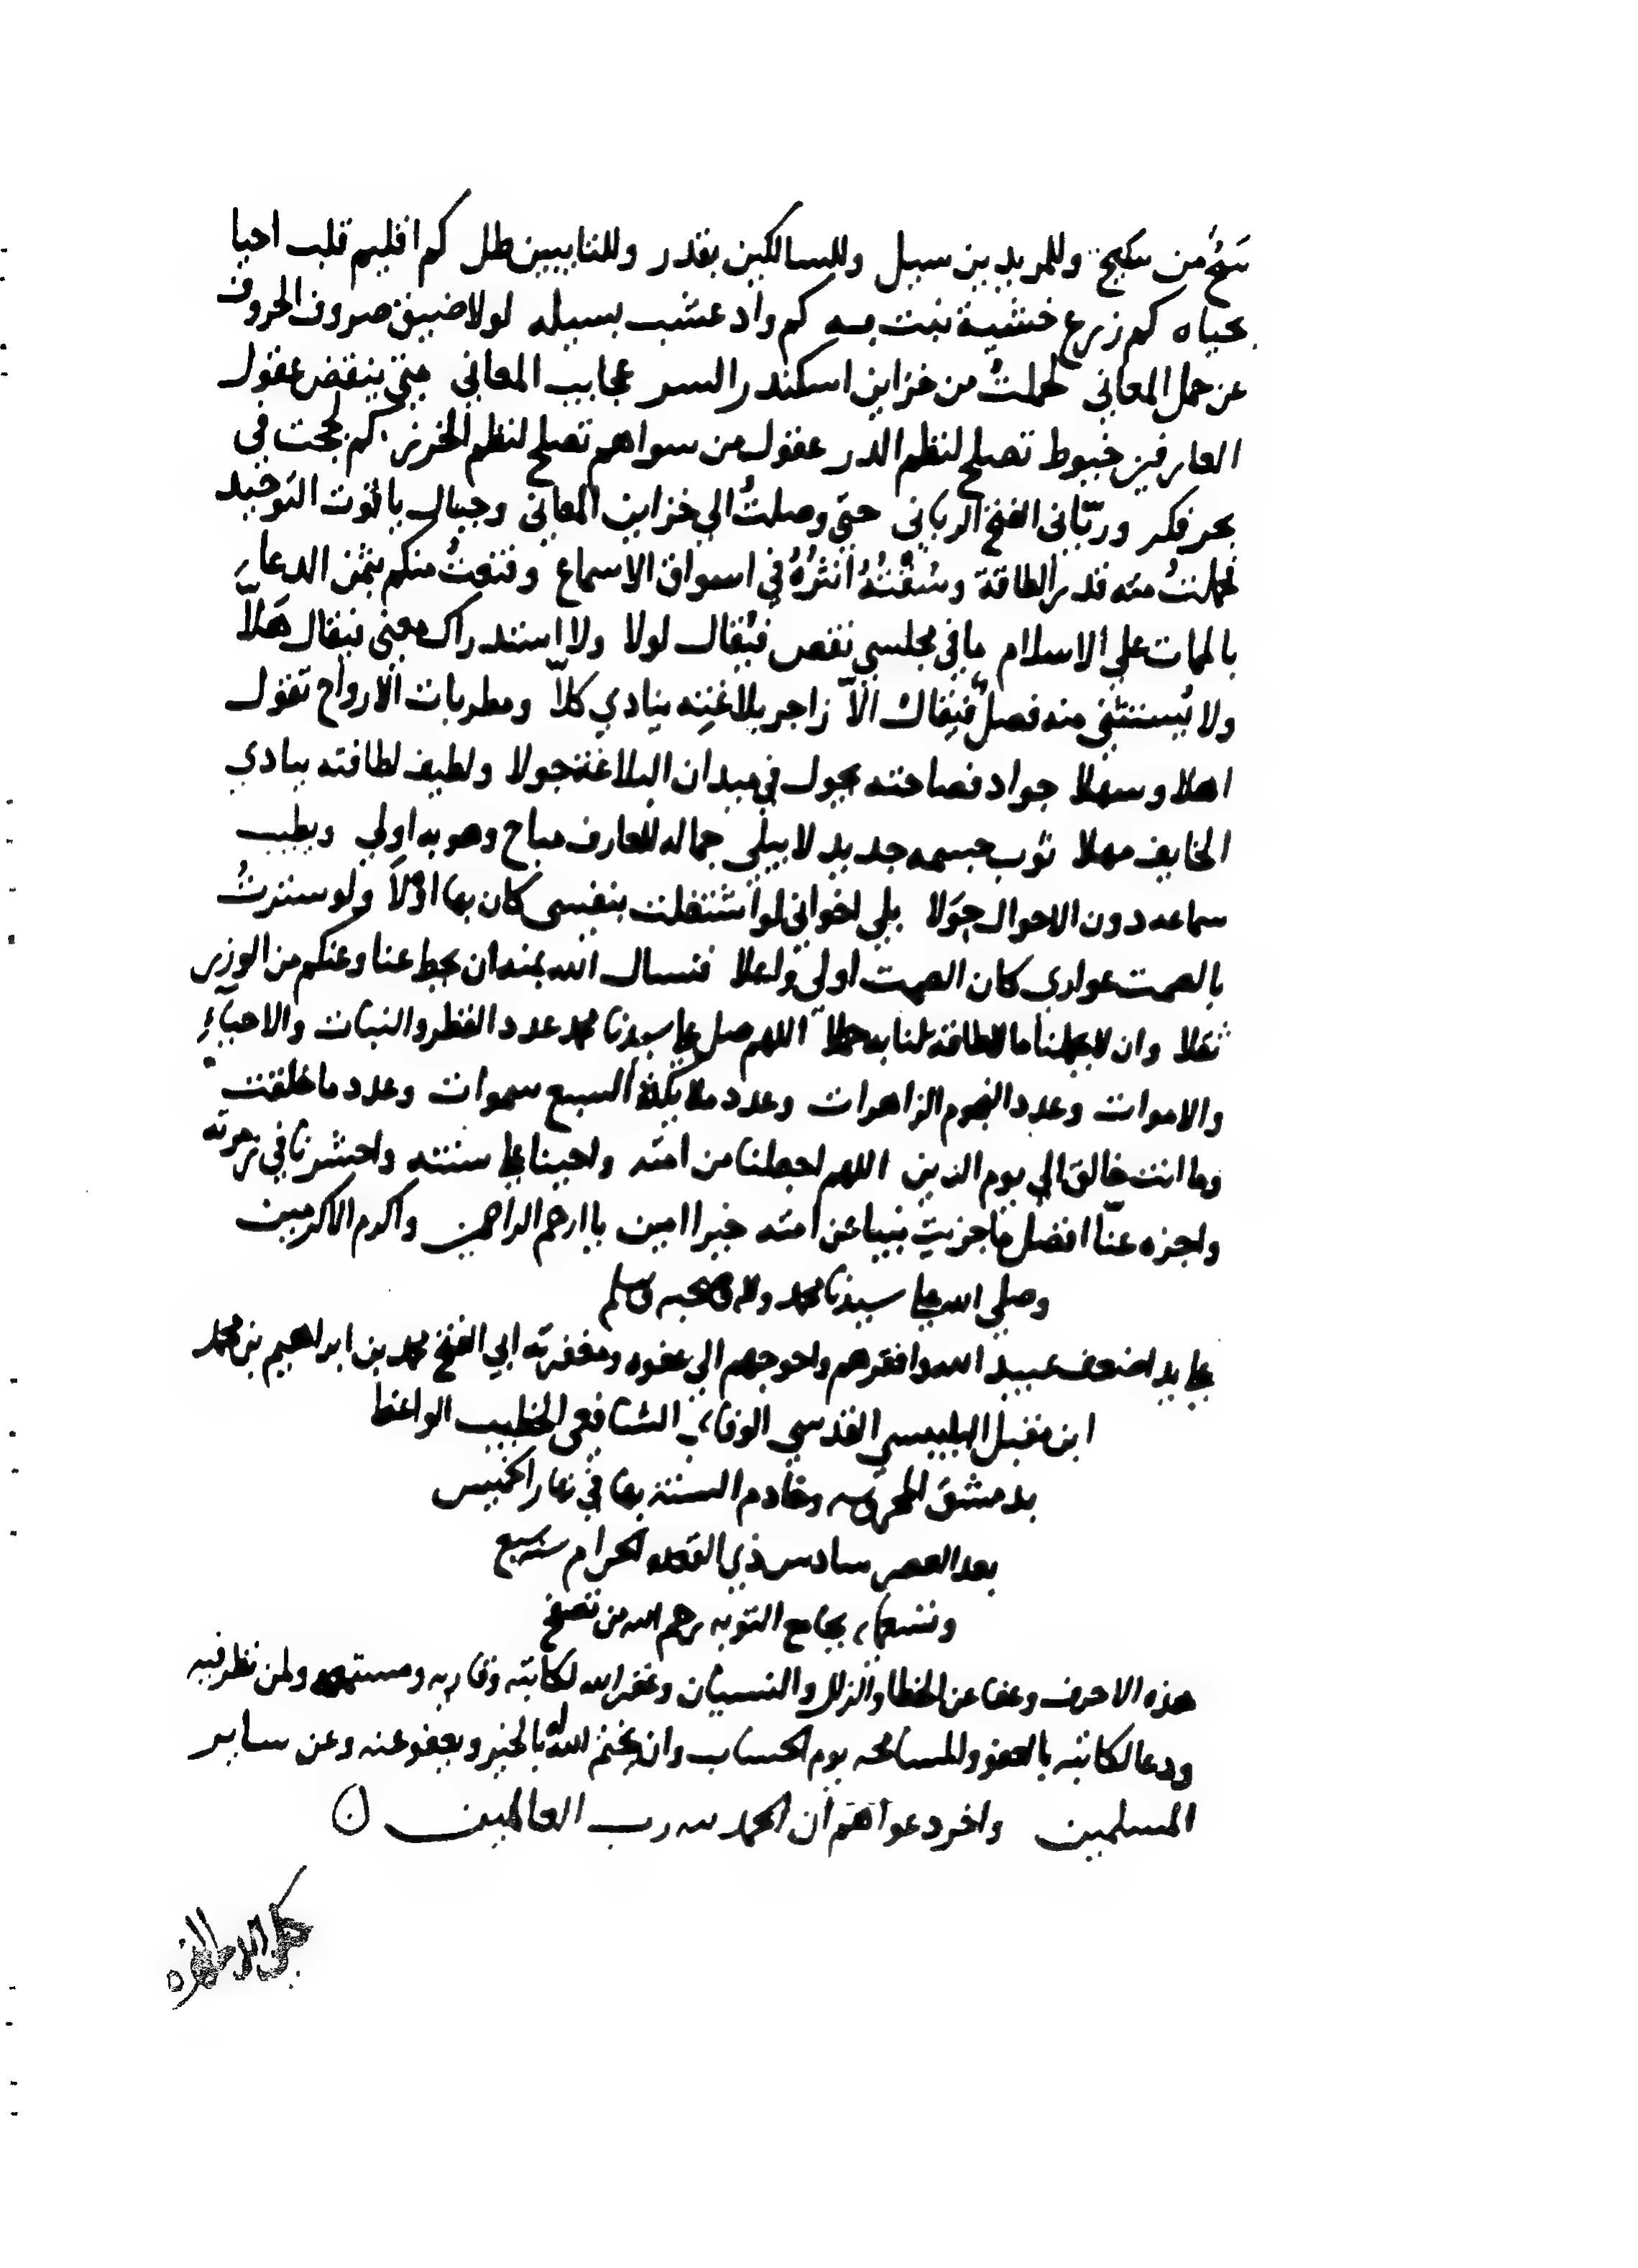 من وللمريدين سبيل وللسالكين بقدر وللتايبين طل كم اقليم قلب احيا
بحياه كم زرع خشية نبت به كم واد عشب بسيله لولا ضيق صروف الحروف
عن حمل المعاني لحملتُ من خزاين اسكندر السر عجايب المعاني عقول
العارفين خيوط تصلح لنظم الدر عقول من سواهم تصلح لنظم الخرز كم لججت في
بحر فكر وربّاني الفتح الرباني حتى وصلتُ الي خزاين المعاني وجبال ياقوت التوحيد
فحملتُ منه قدر الطاقة وسُقْتُهُ انثرُهُ في اسواق الاسماع وقنعتُ منكم بثمن الدعاء
بالممات علي الاسلام ما في مجلسي نقص فيُقال لولا ولا استدراك معني فيقال هَلاّ
ولا يُستثني منه فصلٌ فيقال الاّ زاجر بلاغته ينادي كلاّ ومطربات الارواح تقول
اهلا وسهلا جواد فصاحته يجول في ميدان البلاغة جولا ولطيف لطافته ينادي
الخايف مهلا ثوب جسمه جديد لا يبلي جماله للعارف مباح وهو به اولي ويطيب
سماعه دون الاحوال حِوَلا بلي اخواني لو اشتغلت بنفسي كان بها اوّلاَ ولو سترتُ
بالصمت عواري كان الصمت اولي واعلا فنسال الله بمنه ان يحط عنا وعنكم من الوزر
ثقلا وان لا يحملنا ما لا طاقة لنا به حملا اللهم صل علي سيدنا محمد عدد القطر والنبات والاحياء
والاموات وعدد النجوم الزاهرات وعدد ملايكة السبع سموات وعدد ما خلقت
وما انت خالق الي يوم الدين اللهم اجعلنا من امته واحينا علي سنته واحشرنا في زمرته
واجزه عنّا افضل ما جزيت نبيا عن امته خيرا امين يا ارحم الراحمين واكرم الاكرمين
وصلي الله علي سيدنا محمد واله وصحبه وسلم
علي يد اضعف عبيد الله وافقرهم واحوجهم الي عفوه ومغفرته ابي الفتح محمد بن ابراهيم بن محمد
ابن مقبل البلبيسي القدسي الوفاي الشافعي الخطيب الواعظ
بدمشق المحروسه وخادم السنة بها في نهار الخميس
بعد العصر سادس ذي القعده الحرام سنة سبع
بجامع التوبه رحم الله من تصفح
هذه الاحرف وعفا عن الخطا والزلل والنسيان وغفر الله لكاتبه وقاريه ومستمعه ولمن نظر فيه
ودعا لكاتبه بالعفو والمسامحه يوم الحساب وان يختم الله له بالخير ويعفو عنه وعن ساير
المسلمين واخر دعواهم ان الحمد لله رب العالمين